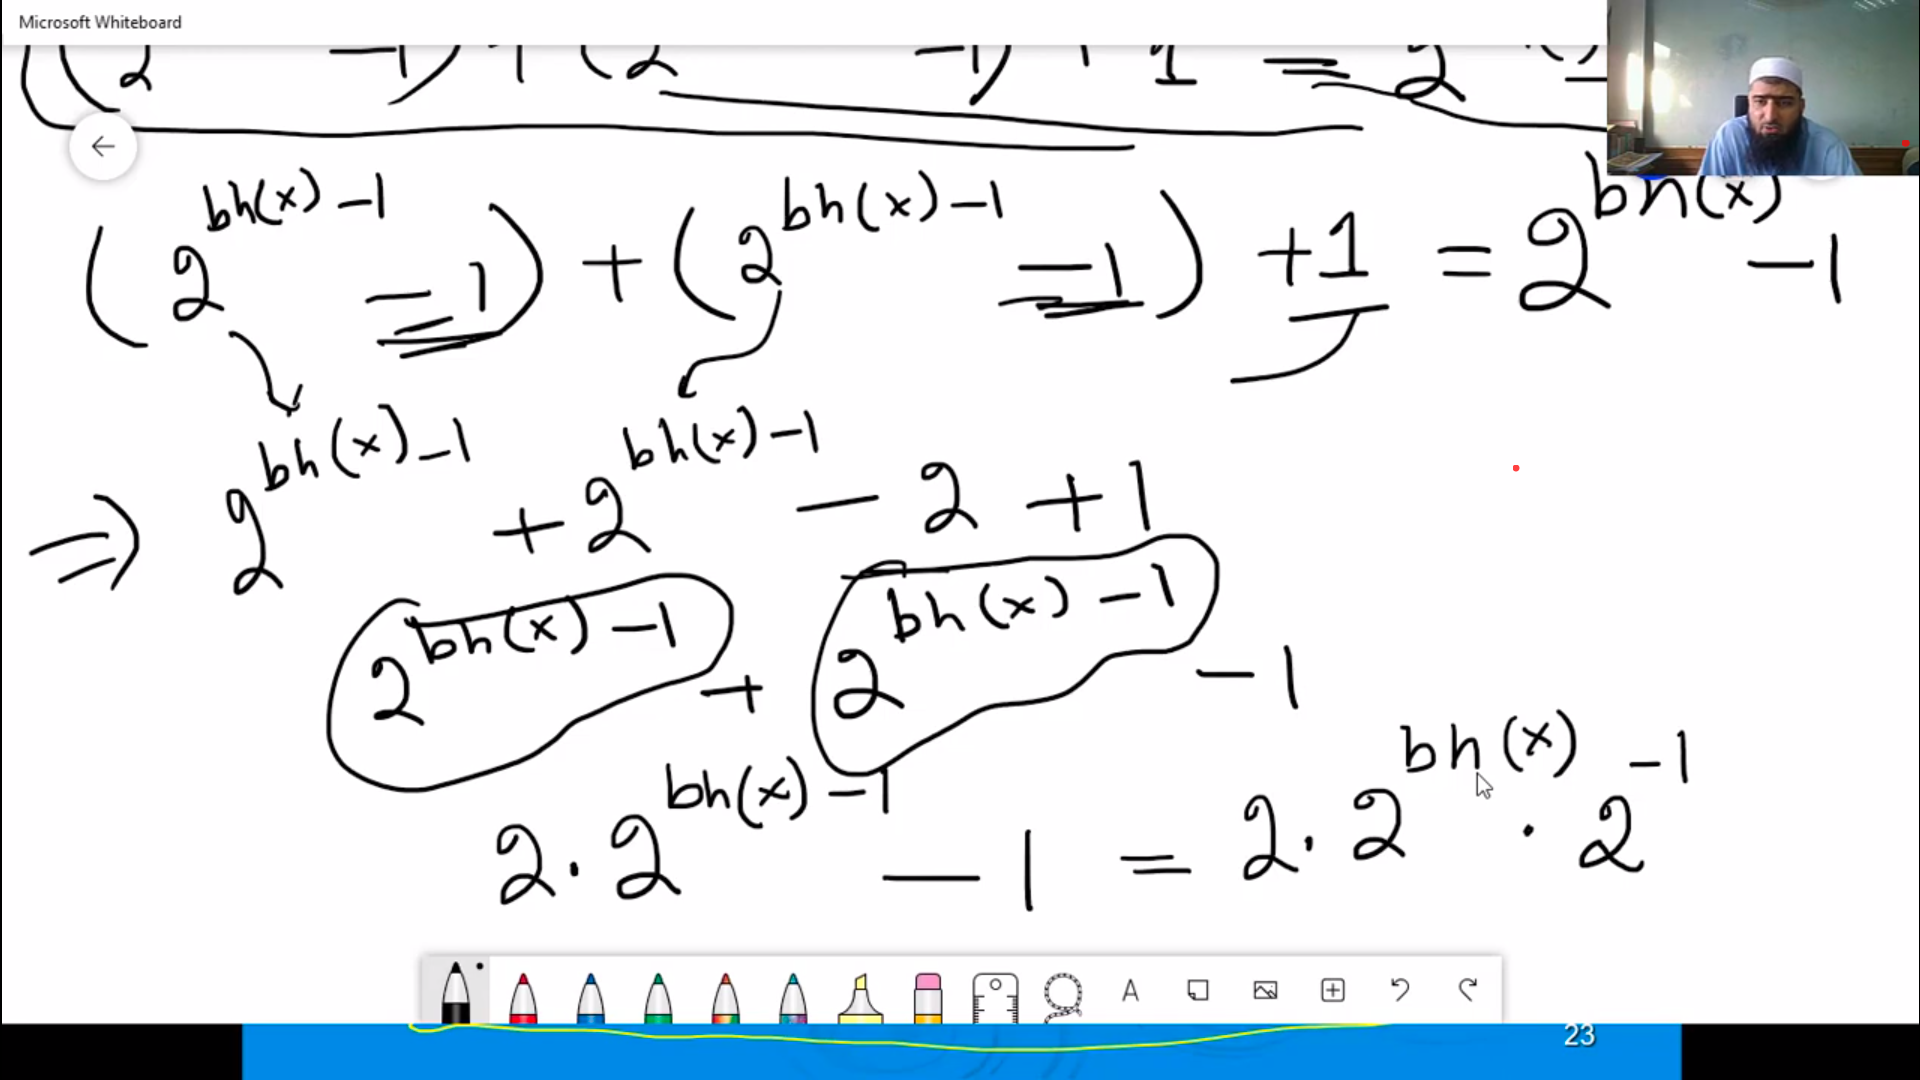 Microsoft Whiteboard
(2 -1) + (2 -1) + 1 = 2
(2^{bh(x)-1} -1) + (2^{bh(x)-1} -1) +1 = 2^{bh(x)} -1
⇒ 2^{bh(x)-1} + 2^{bh(x)-1} - 2 + 1
2^{bh(x)-1} + 2^{bh(x)-1} - 1
2 · 2^{bh(x)-1} - 1 = 2 · 2^{bh(x)} · 2^{-1}
A
23